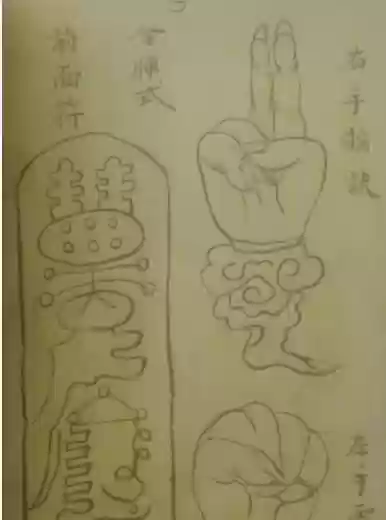 右手指訣
左手
令牌式
前面符